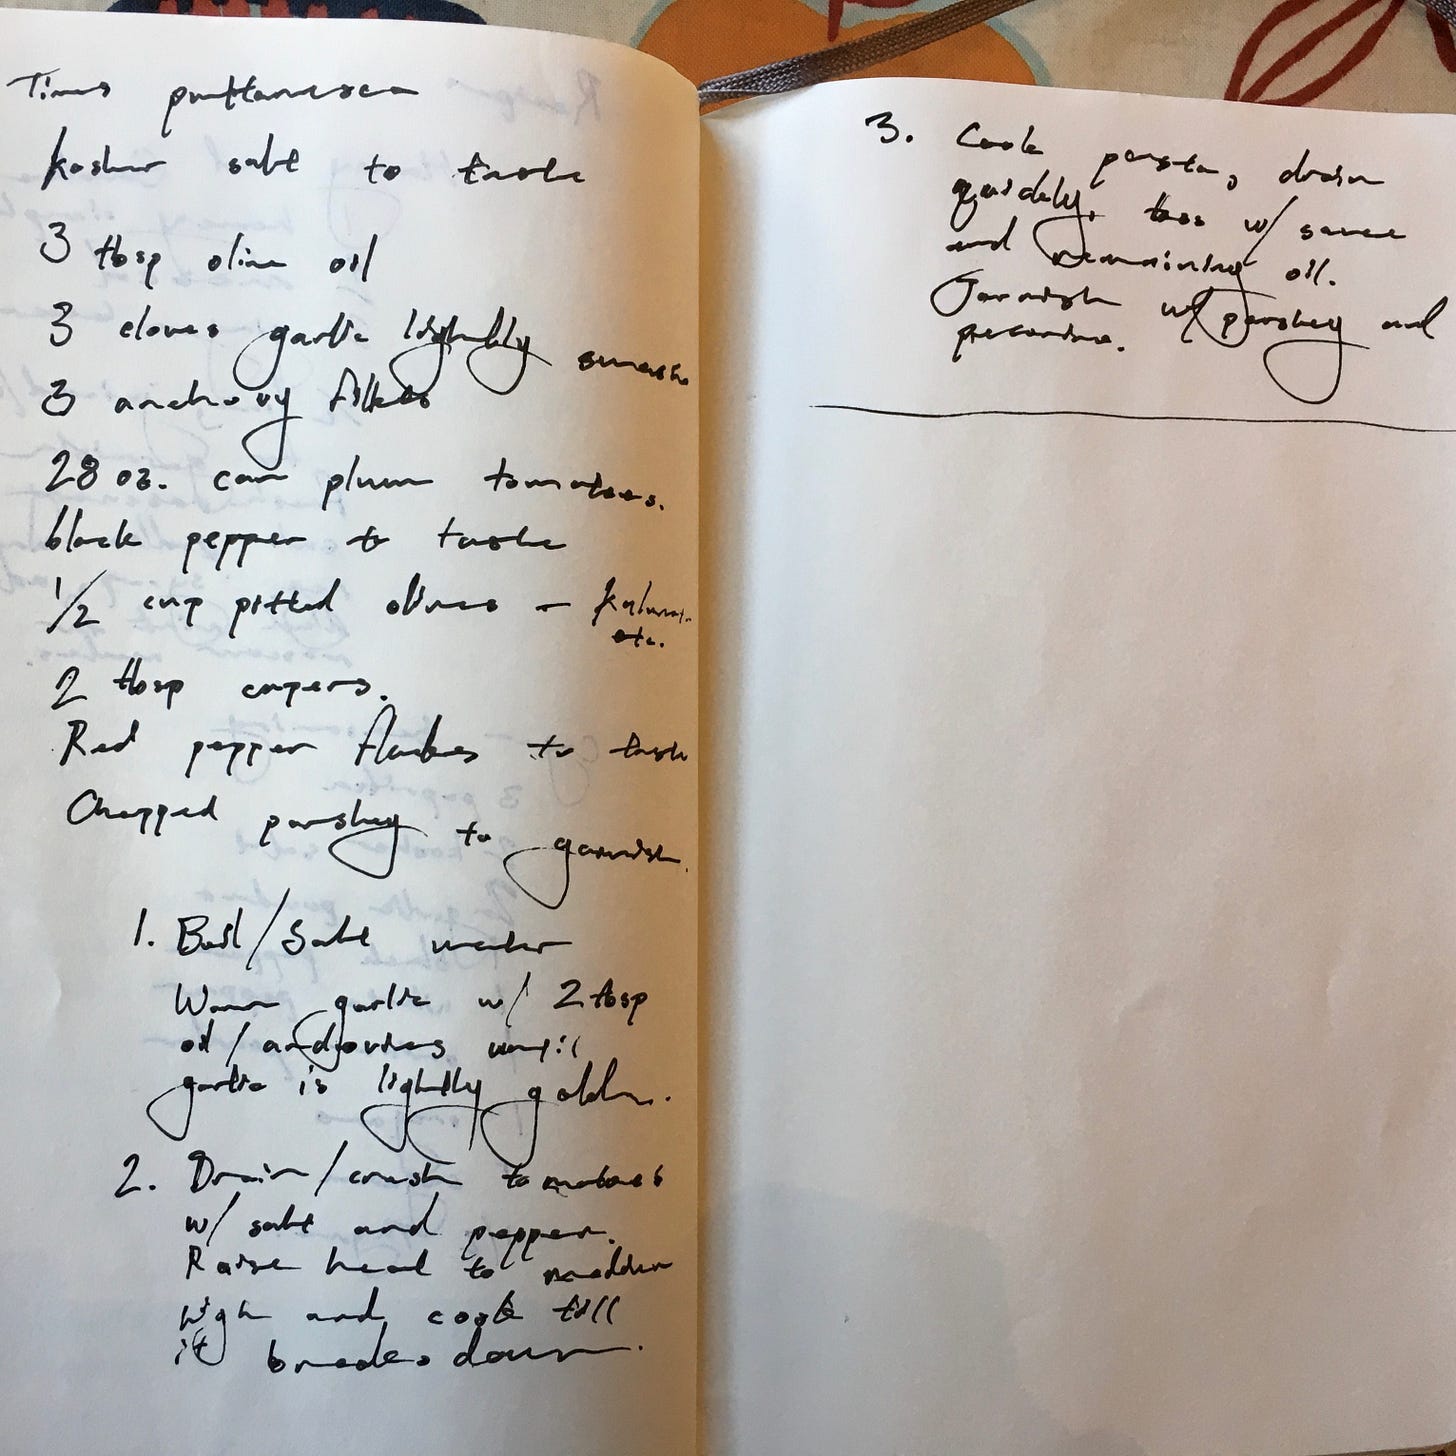 Times puttanesca
kosher salt to taste
3 tbsp olive oil
3 cloves garlic lightly smash
3 anchovy fillets
28 oz. can plum tomatoes.
black pepper to taste
1/2 cup pitted olives – kalam.
etc.
2 tbsp capers.
Red pepper flakes to taste
Chopped parsley to garnish.
1. Boil/Salt water
Warm garlic w/ 2 tbsp
oil/anchovies until
garlic is lightly golden.
2. Drain/crush tomatoes
w/ salt and pepper.
Raise heat to medium
high and cook till
it breaks down.
3. Cook pasta, drain
quickly, toss w/ sauce
and remaining oil.
Garnish w/ parsley and
pecorino.